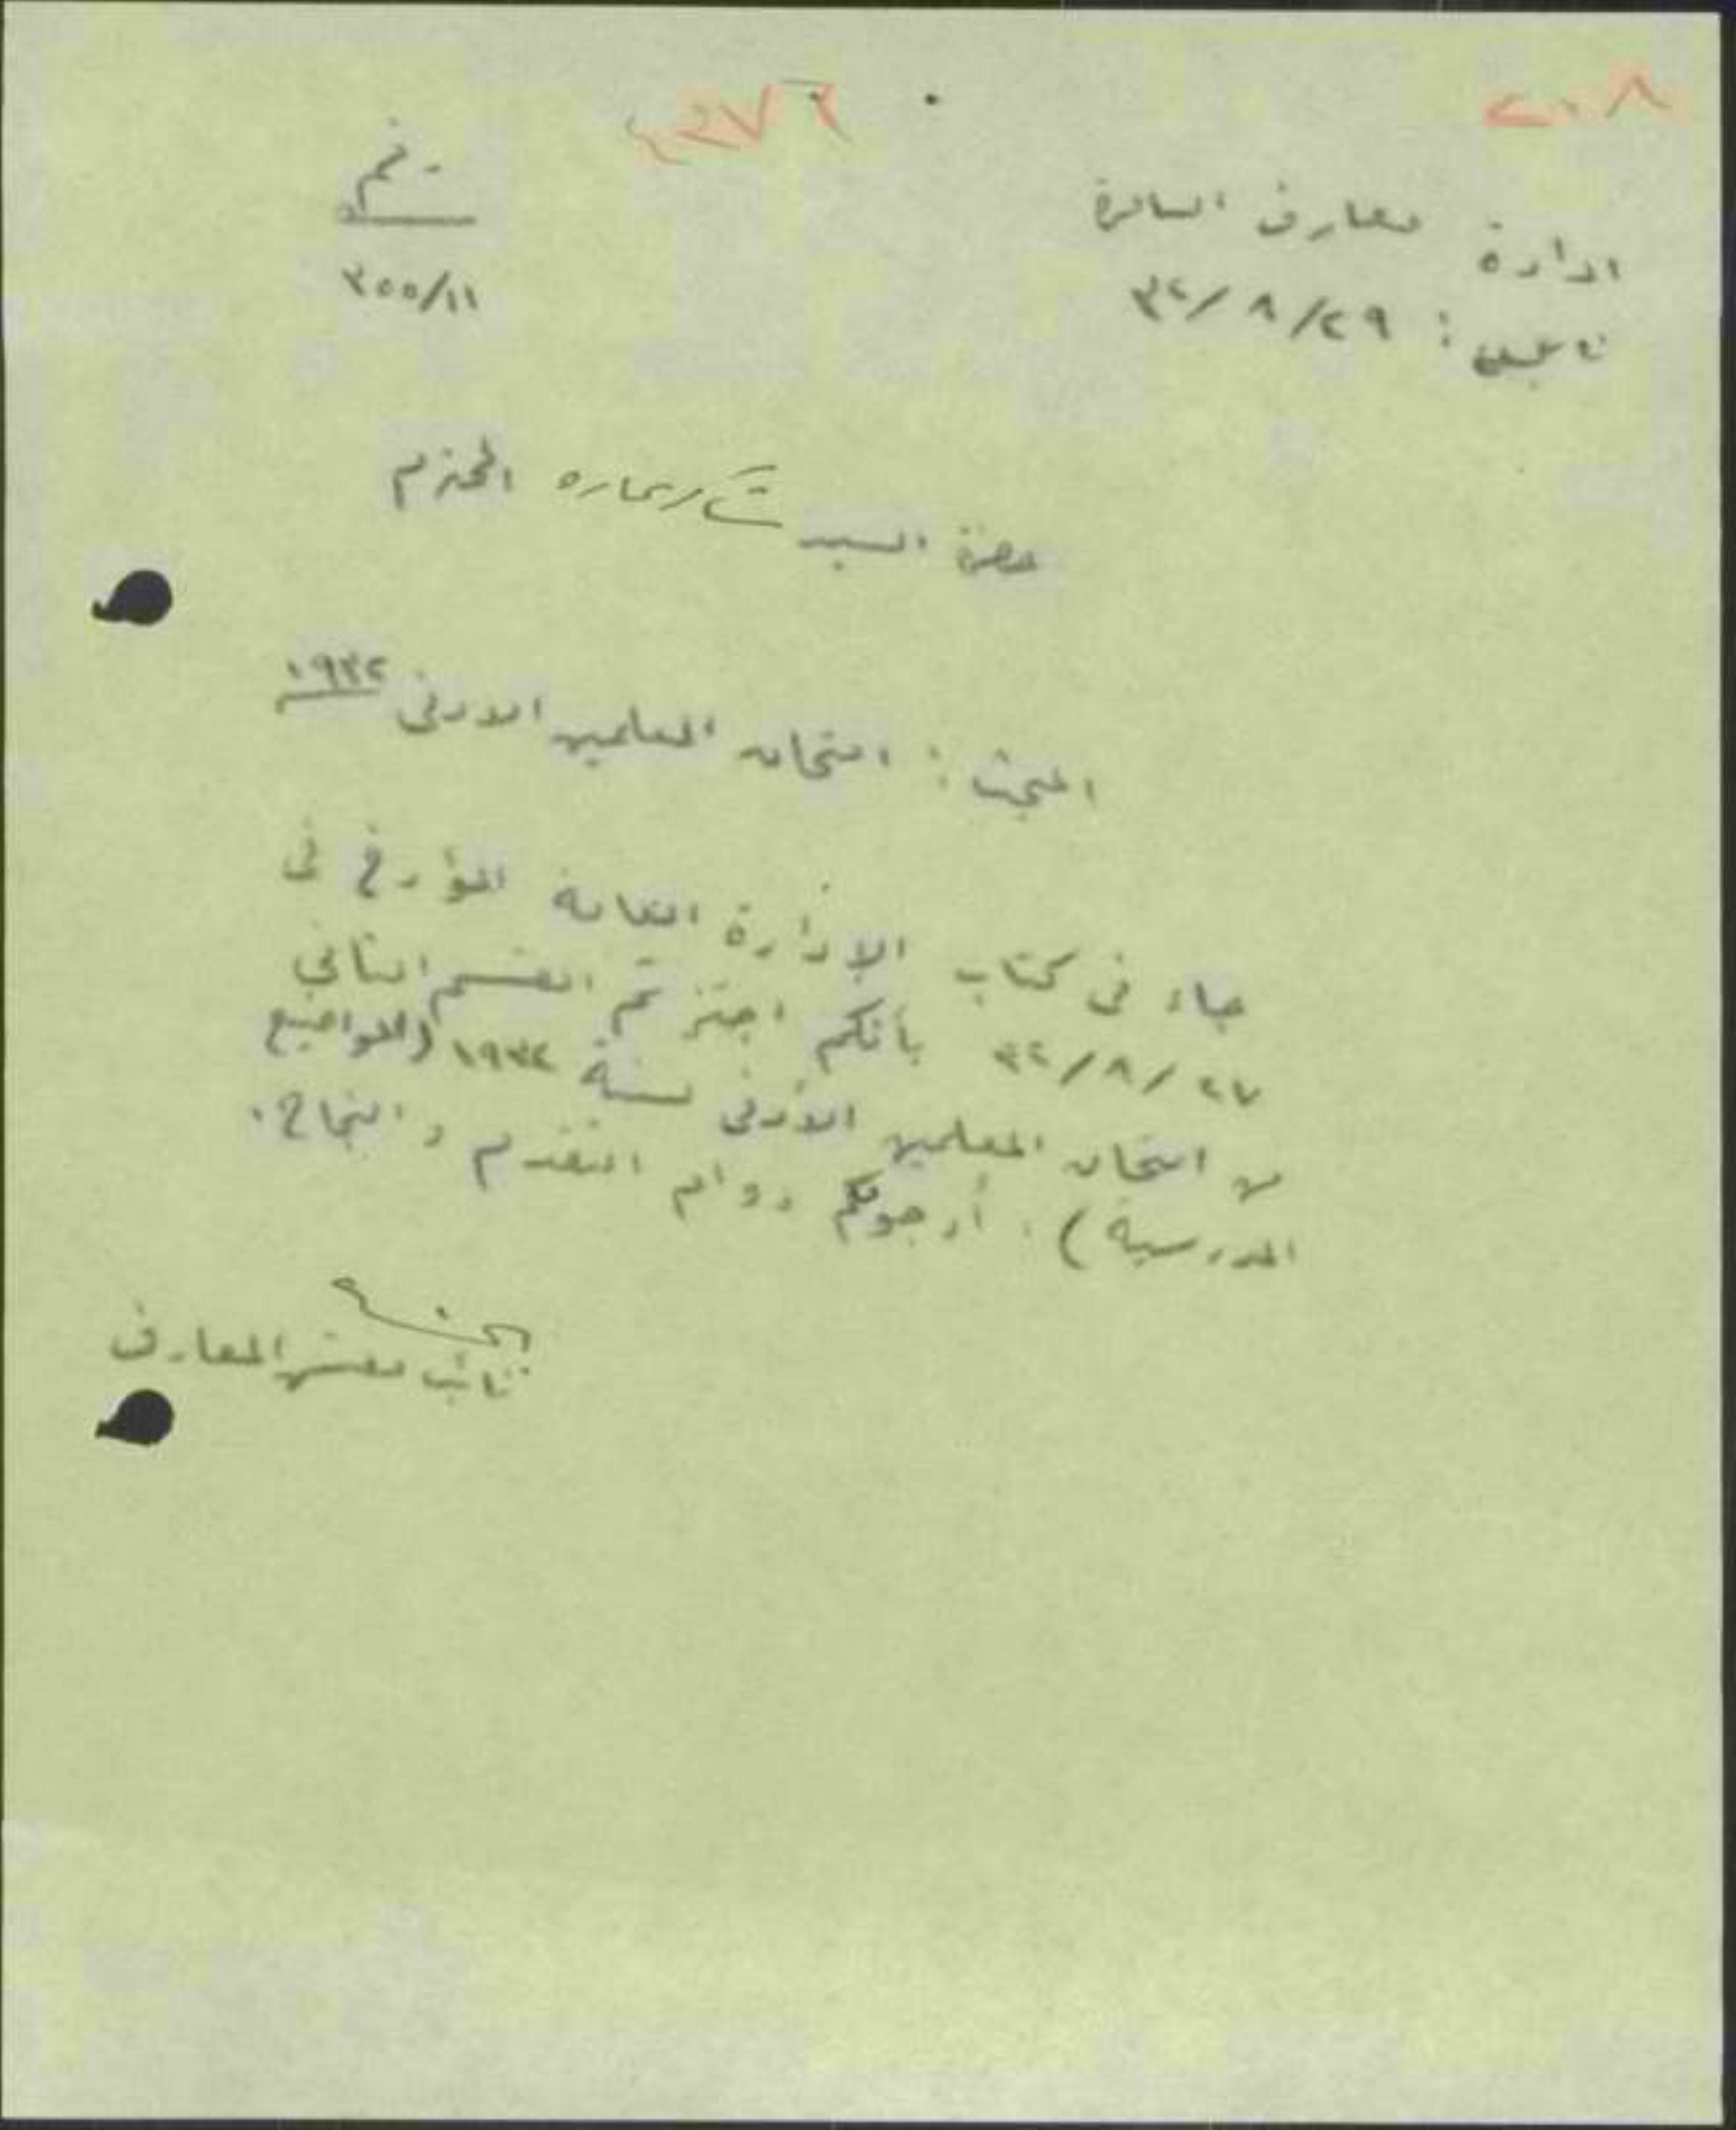 ٢٠٨
ادارة معارف السامرة
نابلس : ٢٩/ ٨ /٣٢
رقم
٣٥٥/١١
حضرة السيد شاكر المحترم
المبحث : امتحان المعلمين الادنى ١٩٣٢
جاء في كتاب الإدارة العامة المؤرخ في
٢٧ /٨/ ٣٢ بأنكم اجتزتم القسم الثاني
من امتحان المعلمين الأدنى لسنة ١٩٣٢ (المواضيع
المدرسية) . أرجو لكم دوام التقدم والنجاح .
نائب مفتش المعارف